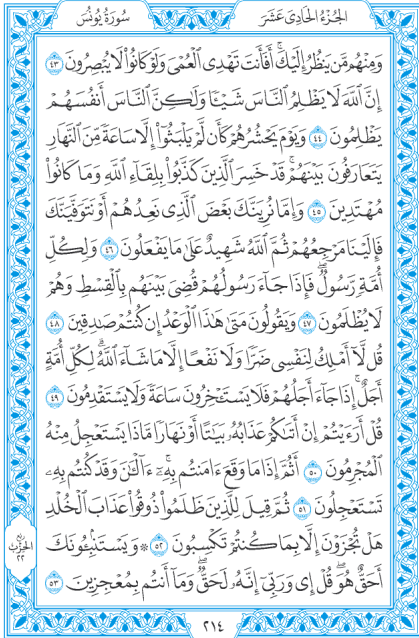 سُورَةُ يُونُسَ
الجُزْءُ الحَادِى عَشَرَ
وَمِنْهُم مَّن يَنظُرُ إِلَيْكَ ۚ أَفَأَنتَ تَهْدِى ٱلْعُمْىَ وَلَوْ كَانُوا۟ لَا يُبْصِرُونَ ٤٣
إِنَّ ٱللَّهَ لَا يَظْلِمُ ٱلنَّاسَ شَيْـًٔا وَلَـٰكِنَّ ٱلنَّاسَ أَنفُسَهُمْ
يَظْلِمُونَ ٤٤ وَيَوْمَ يَحْشُرُهُمْ كَأَن لَّمْ يَلْبَثُوٓا۟ إِلَّا سَاعَةً مِّنَ ٱلنَّهَارِ
يَتَعَارَفُونَ بَيْنَهُمْ ۚ قَدْ خَسِرَ ٱلَّذِينَ كَذَّبُوا۟ بِلِقَآءِ ٱللَّهِ وَمَا كَانُوا۟
مُهْتَدِينَ ٤٥ وَإِمَّا نُرِيَنَّكَ بَعْضَ ٱلَّذِى نَعِدُهُمْ أَوْ نَتَوَفَّيَنَّكَ
فَإِلَيْنَا مَرْجِعُهُمْ ثُمَّ ٱللَّهُ شَهِيدٌ عَلَىٰ مَا يَفْعَلُونَ ٤٦ وَلِكُلِّ
أُمَّةٍ رَّسُولٌ ۖ فَإِذَا جَآءَ رَسُولُهُمْ قُضِىَ بَيْنَهُم بِٱلْقِسْطِ وَهُمْ
لَا يُظْلَمُونَ ٤٧ وَيَقُولُونَ مَتَىٰ هَـٰذَا ٱلْوَعْدُ إِن كُنتُمْ صَـٰدِقِينَ ٤٨
قُل لَّآ أَمْلِكُ لِنَفْسِى ضَرًّا وَلَا نَفْعًا إِلَّا مَا شَآءَ ٱللَّهُ ۗ لِكُلِّ أُمَّةٍ
أَجَلٌ ۚ إِذَا جَآءَ أَجَلُهُمْ فَلَا يَسْتَـْٔخِرُونَ سَاعَةً وَلَا يَسْتَقْدِمُونَ ٤٩
قُلْ أَرَءَيْتُمْ إِنْ أَتَىٰكُمْ عَذَابُهُۥ بَيَـٰتًا أَوْ نَهَارًا مَّاذَا يَسْتَعْجِلُ مِنْهُ
ٱلْمُجْرِمُونَ ٥٠ أَثُمَّ إِذَا مَا وَقَعَ ءَامَنتُم بِهِۦٓ ۚ ءَآلْـَٔـٰنَ وَقَدْ كُنتُم بِهِۦ
تَسْتَعْجِلُونَ ٥١ ثُمَّ قِيلَ لِلَّذِينَ ظَلَمُوا۟ ذُوقُوا۟ عَذَابَ ٱلْخُلْدِ
هَلْ تُجْزَوْنَ إِلَّا بِمَا كُنتُمْ تَكْسِبُونَ ٥٢ ۞ وَيَسْتَنۢبِـُٔونَكَ
أَحَقٌّ هُوَ ۖ قُلْ إِى وَرَبِّىٓ إِنَّهُۥ لَحَقٌّ ۖ وَمَآ أَنتُم بِمُعْجِزِينَ ٥٣
ربع
الحزب
٢٢
٢١٤